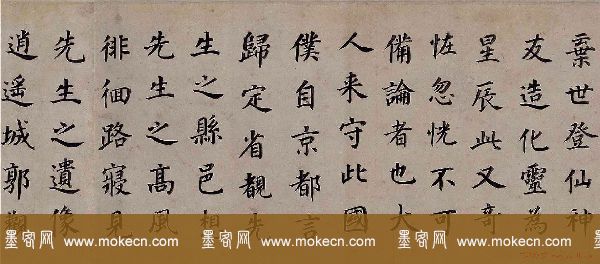 棄世登仙神
友造化靈為
星辰此又奇
恠忽恍不可
備論者也大
人来守此國
僕自京都言
歸定省覩先
生之縣邑想
先生之髙風
徘徊路寢見
先生之遺像
逍遥城郭
墨客网 www.mokecn.com 墨客网 www.mokecn.com 墨客网 www.mokecn.com